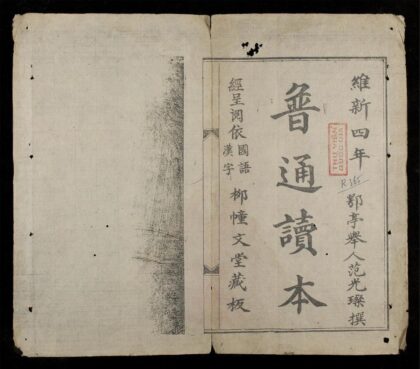 維新四年 鄂亭舉人范光璨撰
普通讀本
經呈閱依國語漢字 柳幢文堂藏板